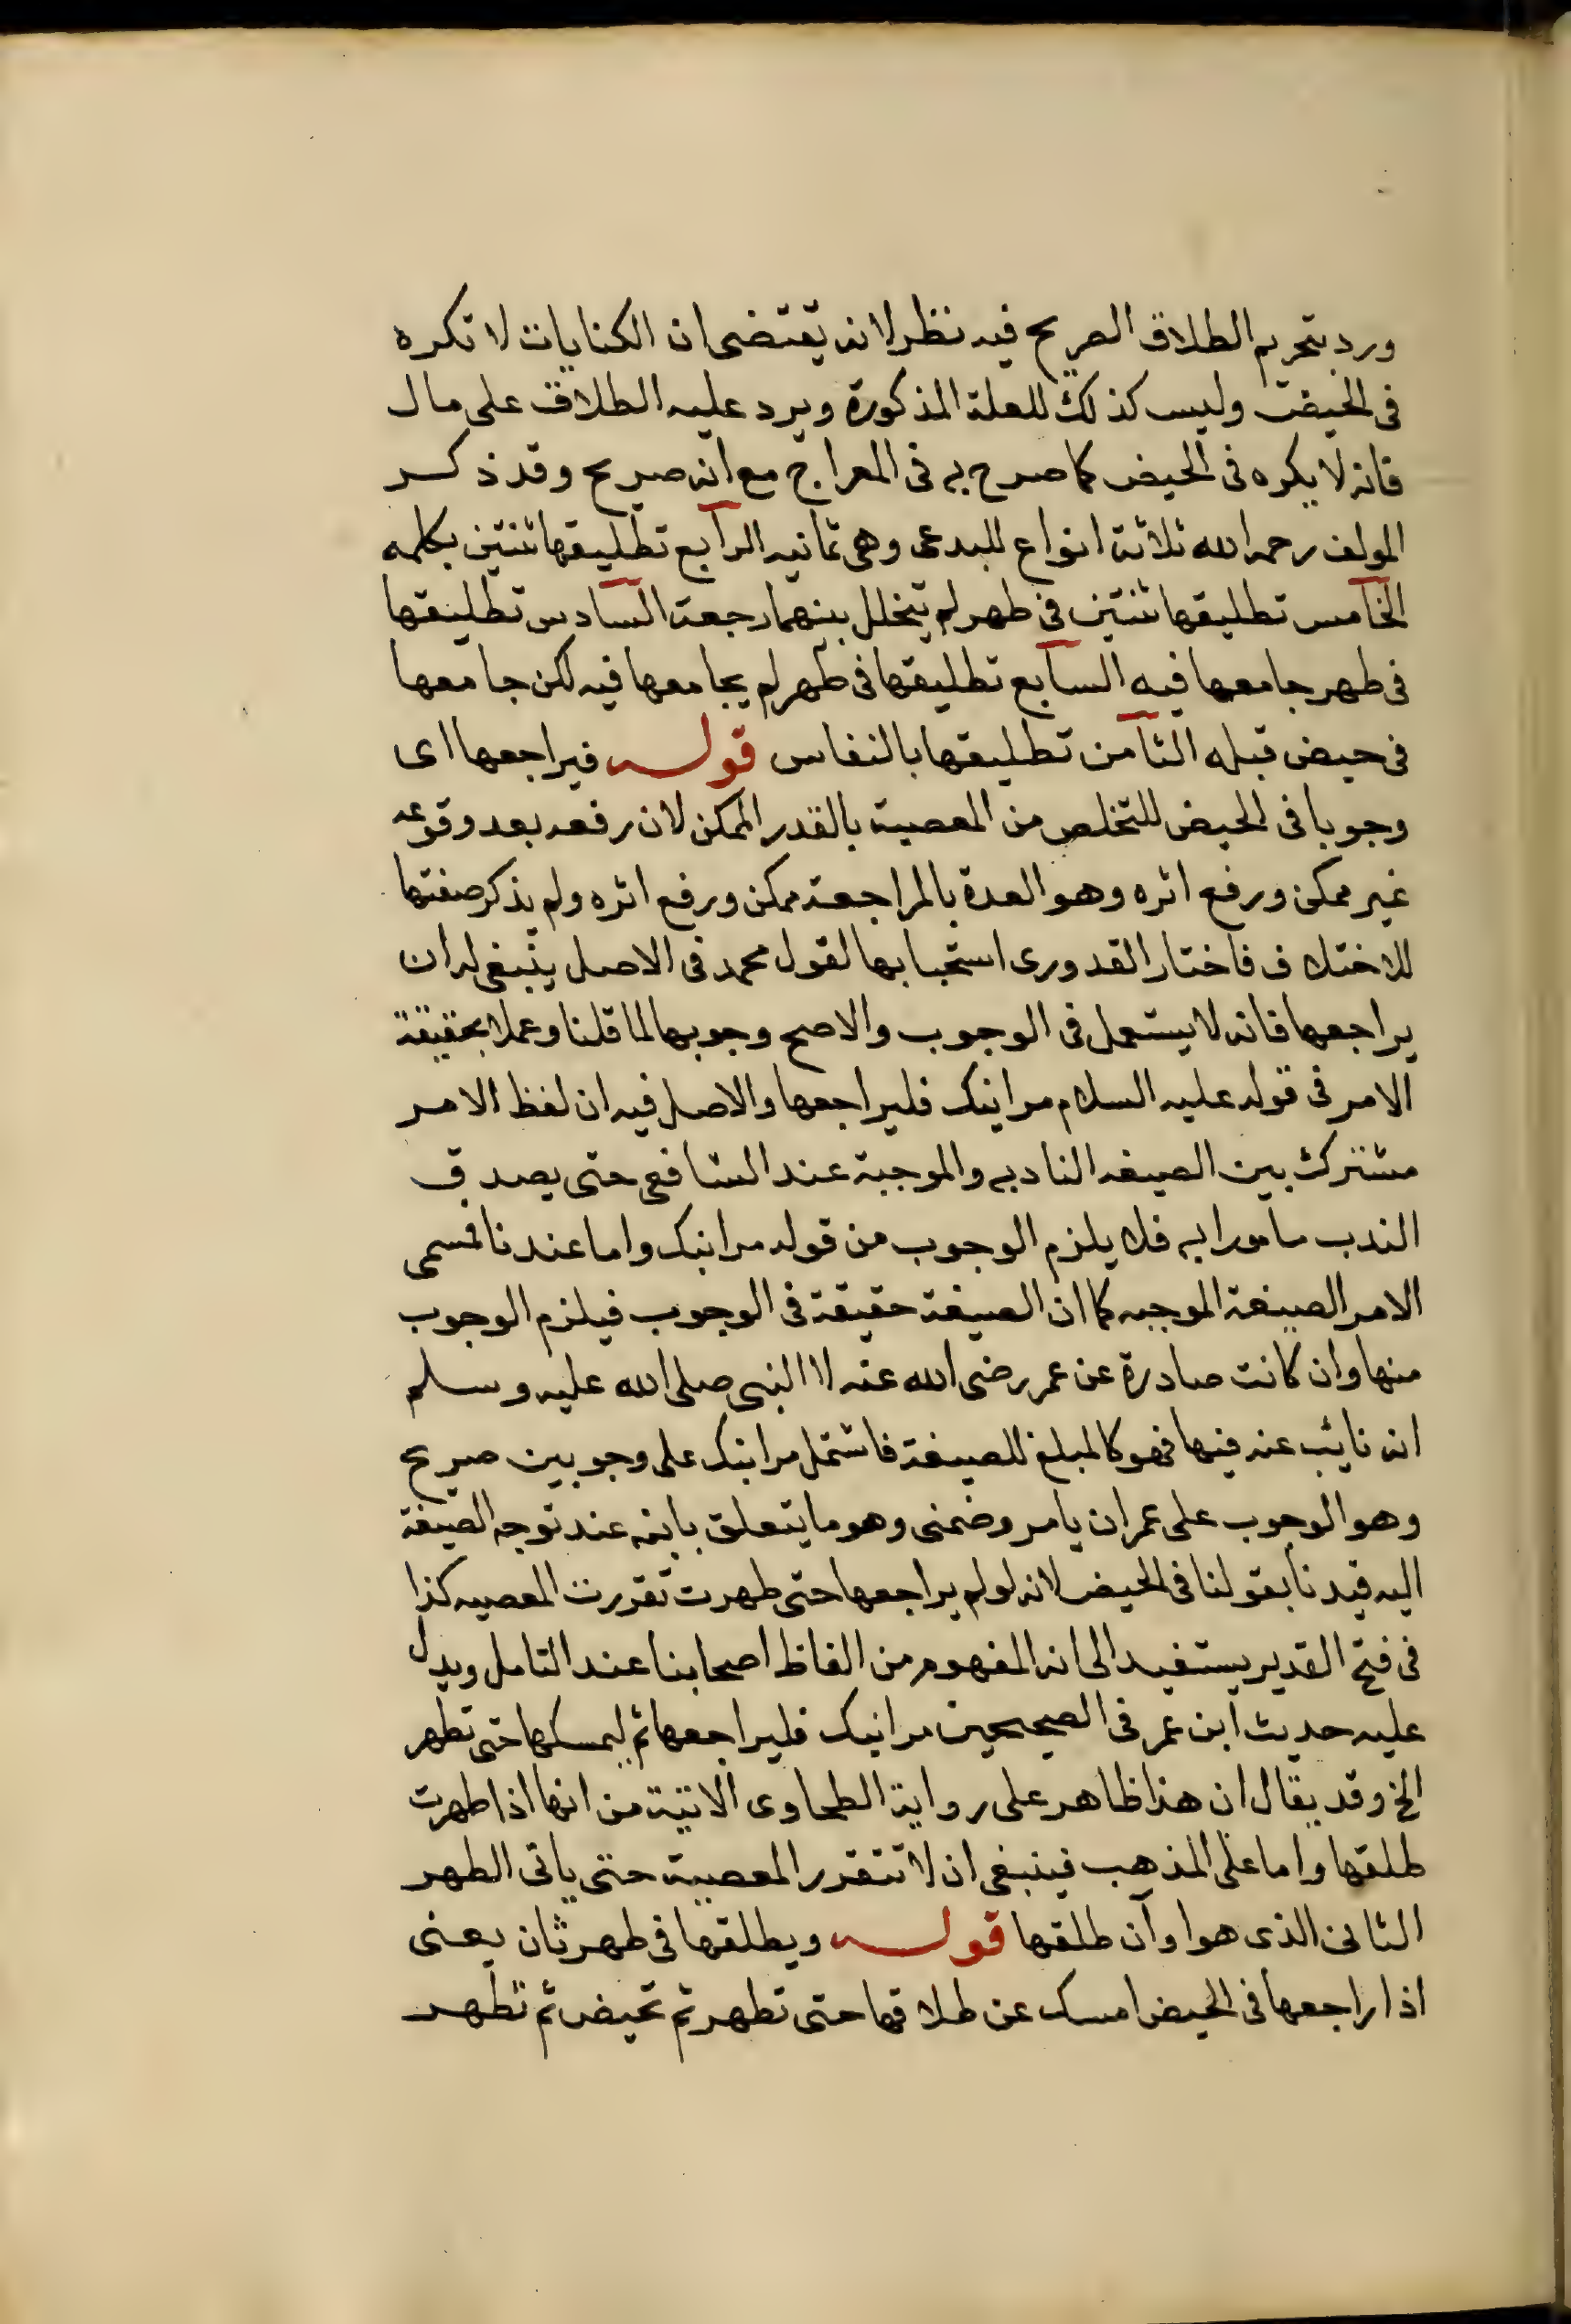 ورد بتحريم الطلاق الصريح فيه نظر لانه يقتضى ان الكنايات لا تكره
فى الحيض وليس كذلك للعلة المذكورة ويرد عليه الطلاق على مال
فانه لا يكره فى الحيض كما صرح به فى المعراج مع انه صريح وقد ذكر
المولف رحمه الله ثلاثة انواع للبدعى وهى ثمانيه الرابع تطليقها ثنتين بكلمه
الخامس تطليقها ثنتين فى طهر لم يتخلل بينهما رجعة السادس تطليقها
فى طهر جامعها فيه السابع تطليقها فى طهر لم يجامعها فيه لكن جامعها
فى حيض قبله الثامن تطليقها بالنفاس قوله فيراجعها اى
وجوبا فى الحيض للتخلص من المعصية بالقدر الممكن لان رفعه بعد وقوعه
غير ممكن ورفع اثره وهو العدة بالمراجعة ممكن ورفع اثره ولم يذكر صفتها
للاختلاف فاختار القدورى استحبابها لقول محمد فى الاصل ينبغى له ان
يراجعها فانه لا يستعمل فى الوجوب والاصح وجوبها لما قلنا وعملا بحقيقة
الامر فى قوله عليه السلام مر ابنك فليراجعها والاصل فيه ان لفظ الامر
مشترك بين الصيغه النادبه والموجبة عند الشافعى حتى يصدق
الندب مامورا به فلا يلزم الوجوب من قوله مر ابنك واما عندنا فمسمى
الامر الصيغة الموجبه كما ان الصيغة حقيقة فى الوجوب فيلزم الوجوب
منها وان كانت صادرة عن عمر رضى الله عنه لا النبى صلى الله عليه وسلم
انه نايب عنه فيها فهو كالمبلغ للصيغة فاشتمل مر ابنك على وجوبين صريح
وهو الوجوب على عمر ان يامر وضمنى وهو ما يتعلق بابنه عند توجه الصيغة
اليه قيدنا بقولنا فى الحيض لانه لو لم يراجعها حتى طهرت تقررت المعصيه كذا
فى فتح القدير يستفيد الى انه المفهوم من الفاظ اصحابنا عند التامل ويدل
عليه حديث ابن عمر فى الصحيحين مر ابنك فليراجعها ثم ليمسكها حتى تطهر
الخ وقد يقال ان هذا ظاهر على رواية الطحاوى الاتية من انها اذا طهرت
طلقها واما على المذهب فينبغى ان لا تتقرر المعصية حتى ياتى الطهر
الثانى الذى هو اوان طلقها قوله ويطلقها فى طهر ثان يعنى
اذا راجعها فى الحيض امسك عن طلاقها حتى تطهر ثم تحيض ثم تطهر